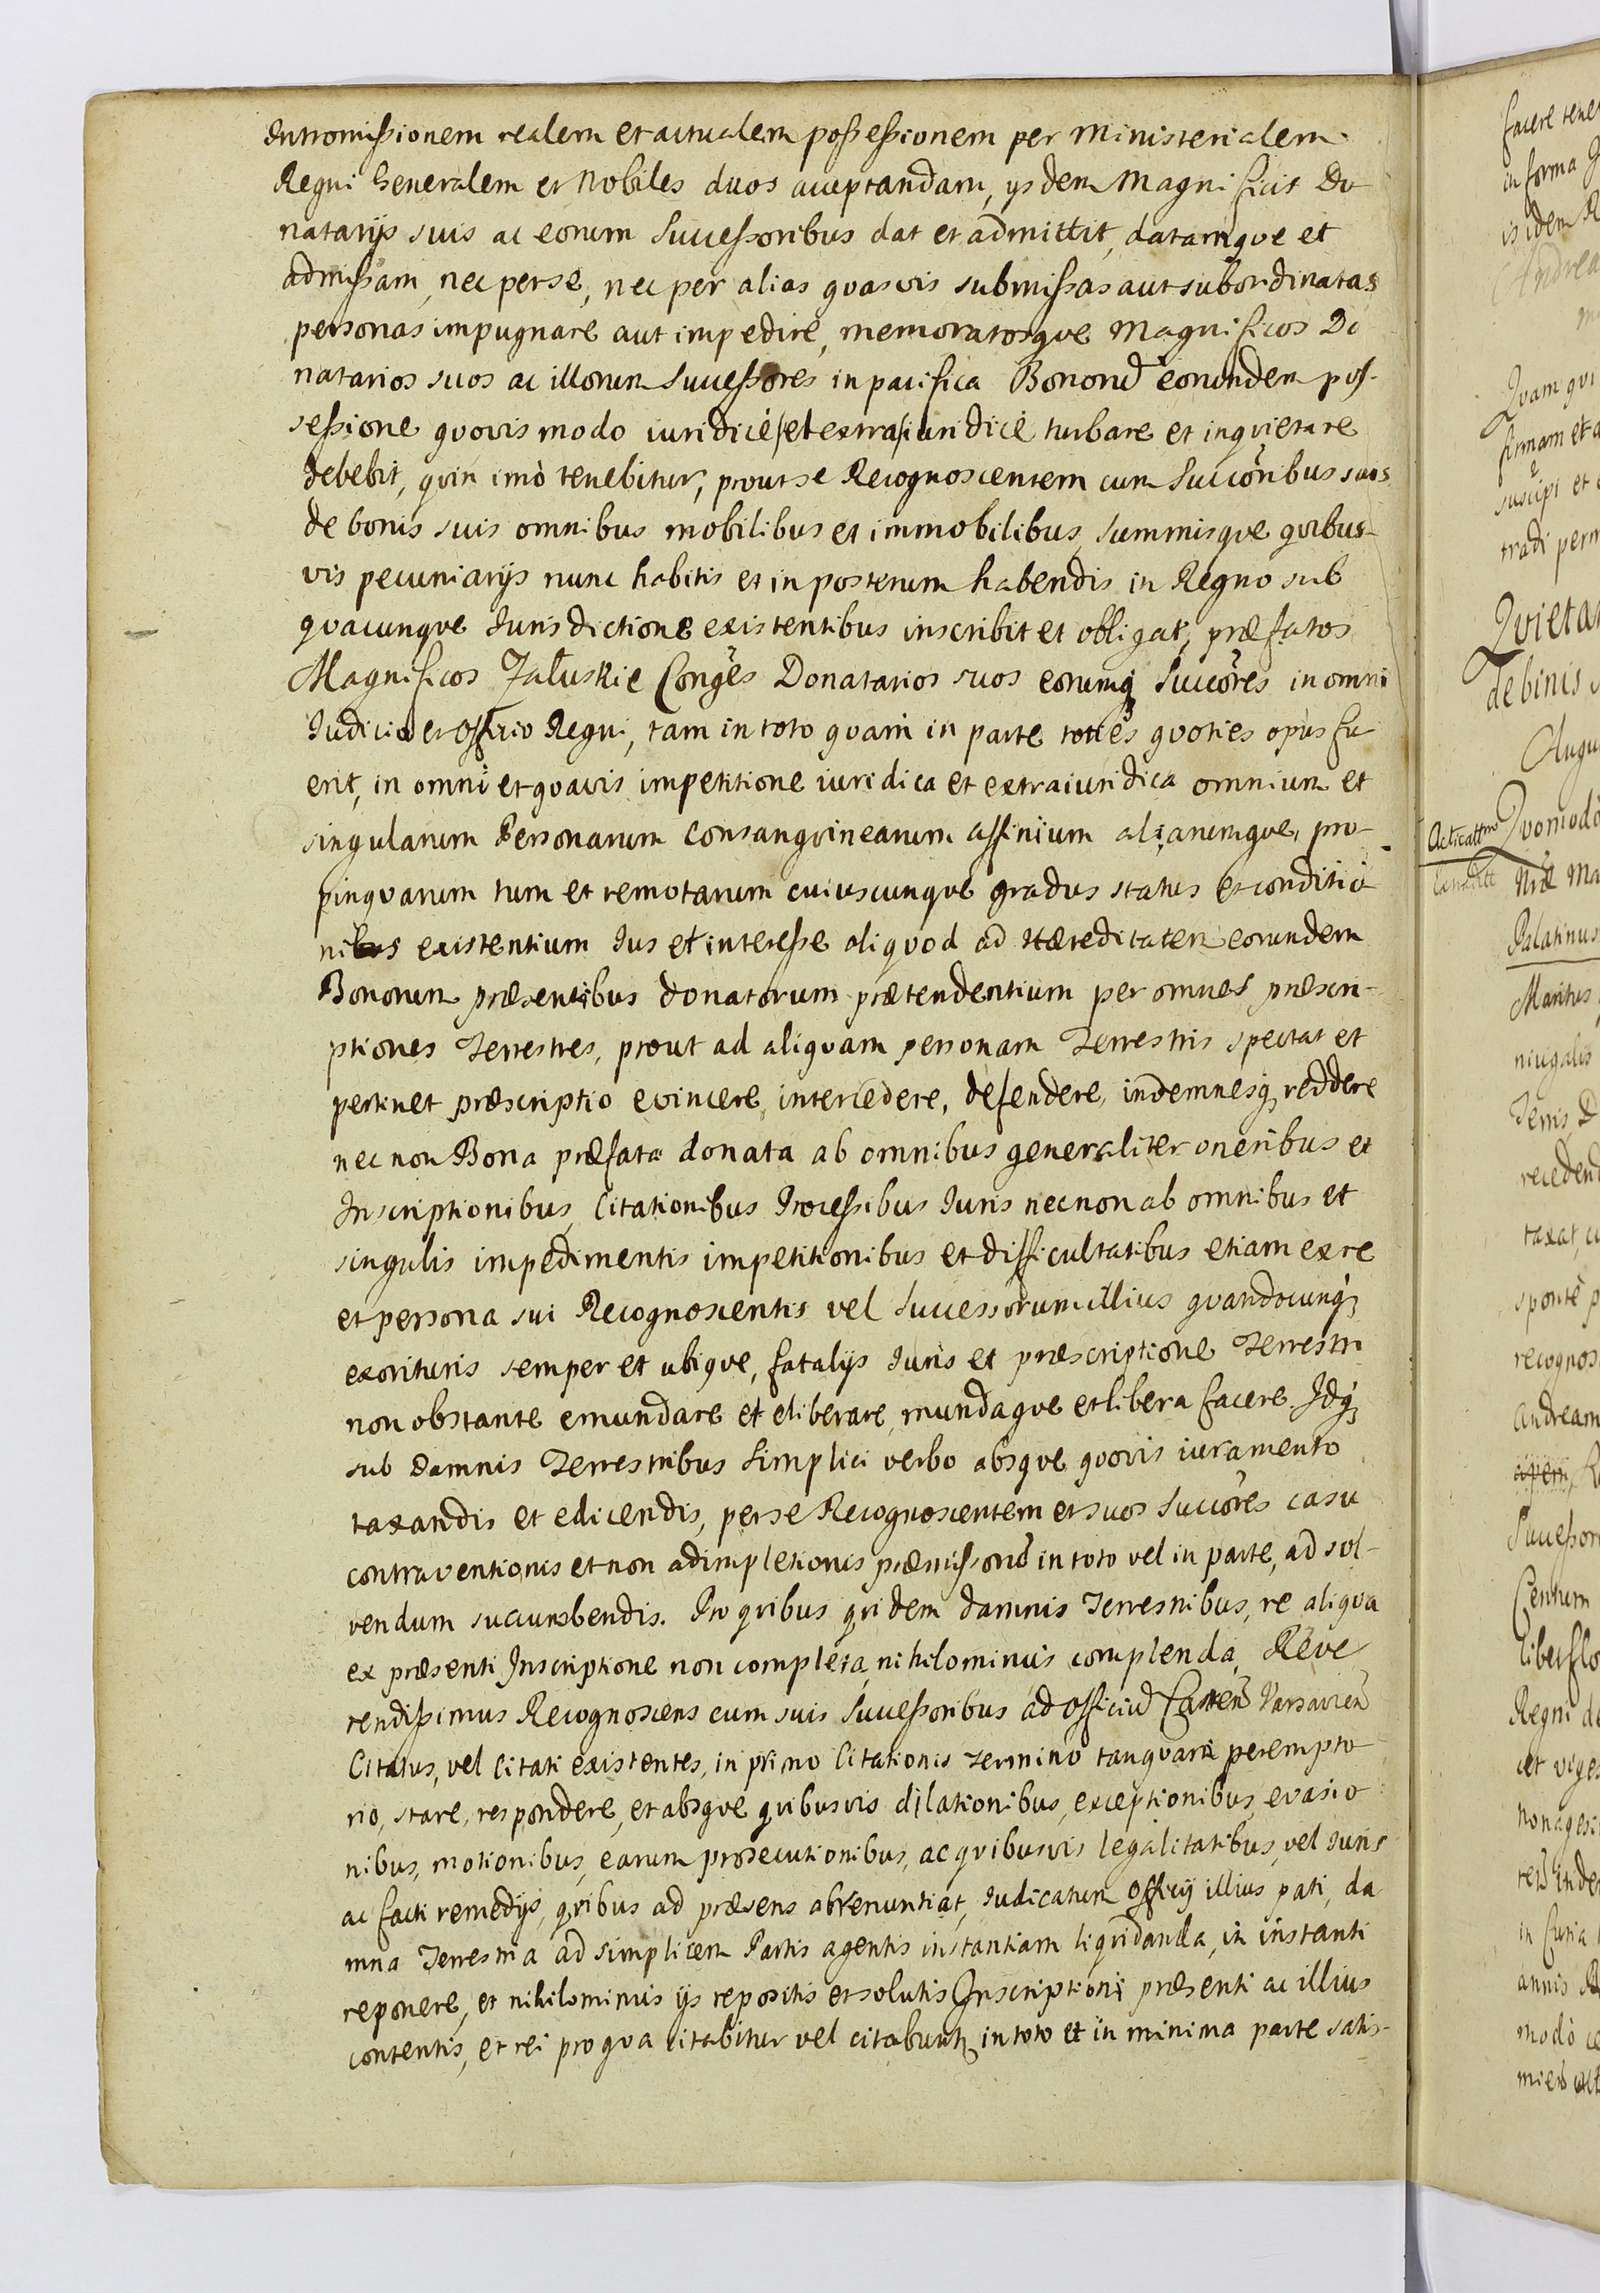 Intromissionem realem et actualem possessionem per Ministerialem
Regni Generalem et Nobiles duos acceptandam, ysdem Magnificis Do
natarijs suis ac eorum Successoribus dat et admittit, datamque et
admissam, nec per se, nec per alias quasvis submissas aut subordinatas
personas impugnare aut impedire, memoratosque Magnificos Do
natarios suos ac illorum Successores in pacifica Bonorũ eorundem pos-
sessione quovis modo iuridicè et extraiuridicè turbare et inquietare
debebit, quin imò tenebitur, prout se Recognoscentem cum Succõribus suis
de bonis suis omnibus mobilibus et immobilibus, summisque quibus-
vis pecuniarijs nunc habitis et in posterum habendis in Regno sub
quacunque Jurisdictione existentibus inscribit et obligat, præfatos
Magnificos Załuskie Congẽs Donatarios suos eorumq Succõres in omni
Judicio et Offficio Regni, tam in toto quam in parte toties quoties opus fu
erit, in omni et quavis impetitione iuridica et extraiuridica omnium et
singularum Personarum consanguinearum affinium aliarumque, pro-
pinquarum tum et remotarum cuiuscunque gradus status et conditio
nibus existentium Jus et interesse aliquod ad Hæreditatem eorundem
Bonorum præsentibus donatorum prætendentium per omnes præscri-
ptiones Terrestres, prout ad aliquam personam Terrestris spectat et
pertinet præscriptio evincere, intercedere, defendere, indemnesq reddere
nec non Bona præfata donata ab omnibus generaliter oneribus et
Inscriptionibus, Citationibus Processibus Juris nec non ab omnibus et
singulis impedimentis impetitionibus et difficultatibus etiam ex re
et persona sui Recognoscentis vel Successorum illius quandocunq
exorituris semper et ubique, fatalijs Juris et præscriptione Terrestri
non obstante emundare et eliberare, mundaque et libera facere. Idq
sub damnis Terrestribus simplici verbo absque quovis iuramento
taxandis et edicendis, per se Recognoscentem et suos Succõres casu
contraventionis et non adimpletionis præmissorũ in toto vel in parte, ad sol-
vendum succumbendis. Pro quibus quidem damnis Terrestribus, re aliqua
ex præsenti Inscriptione non completa, nihilominus complenda, Reve
rendissimus Recognoscens cum suis Successoribus ad Officiũ Castreñ Varsavieñ
Citatus, vel Citati existentes, in primo Citationis Termino tanquam perempto
rio, stare, respondere, et absque quibusvis dilationibus, exceptionibus, evasio
nibus, motionibus, earum prosecutionibus, ac quibusvis legalitatibus, vel Juris
ac facti remedijs, quibus ad præsens abrenuntiat, Judicatum Officij illius pati, da
mna Terrestria ad simplicem Partis agentis instantiam liquidanda, in instanti
reponere, et nihilominus ijs repositis et solutis Inscriptioni præsenti ac illius
contentis, et rei pro qua citabitur vel citabunt in toto et in minima parte satis-
facere tene
in forma
is idem
Andrea
Quam qui
firmam et
suscipi et
tradi perm
Quietat
de binis
Augu
Quomodo
Ma
Palatinus
Maritus
niugalis
Terris
recedend
taxat
sponte
recognos
Andream
Successor
Centum
Regni
et viges
nonagesi
in Curia
annis
modò